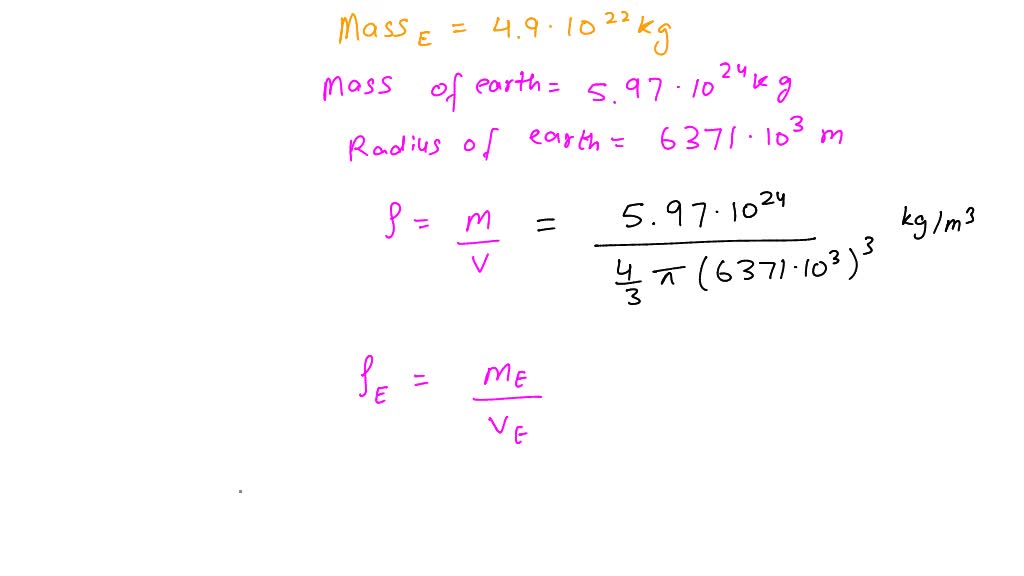 Mass E = 4.9 · 10²² kg
Mass of earth = 5.97 · 10²⁴ kg
Radius of earth = 6371 · 10³ m
ρ = m/V = 5.97 · 10²⁴ / (4/3 π (6371 · 10³)³) kg/m³
ρE = mE / VE